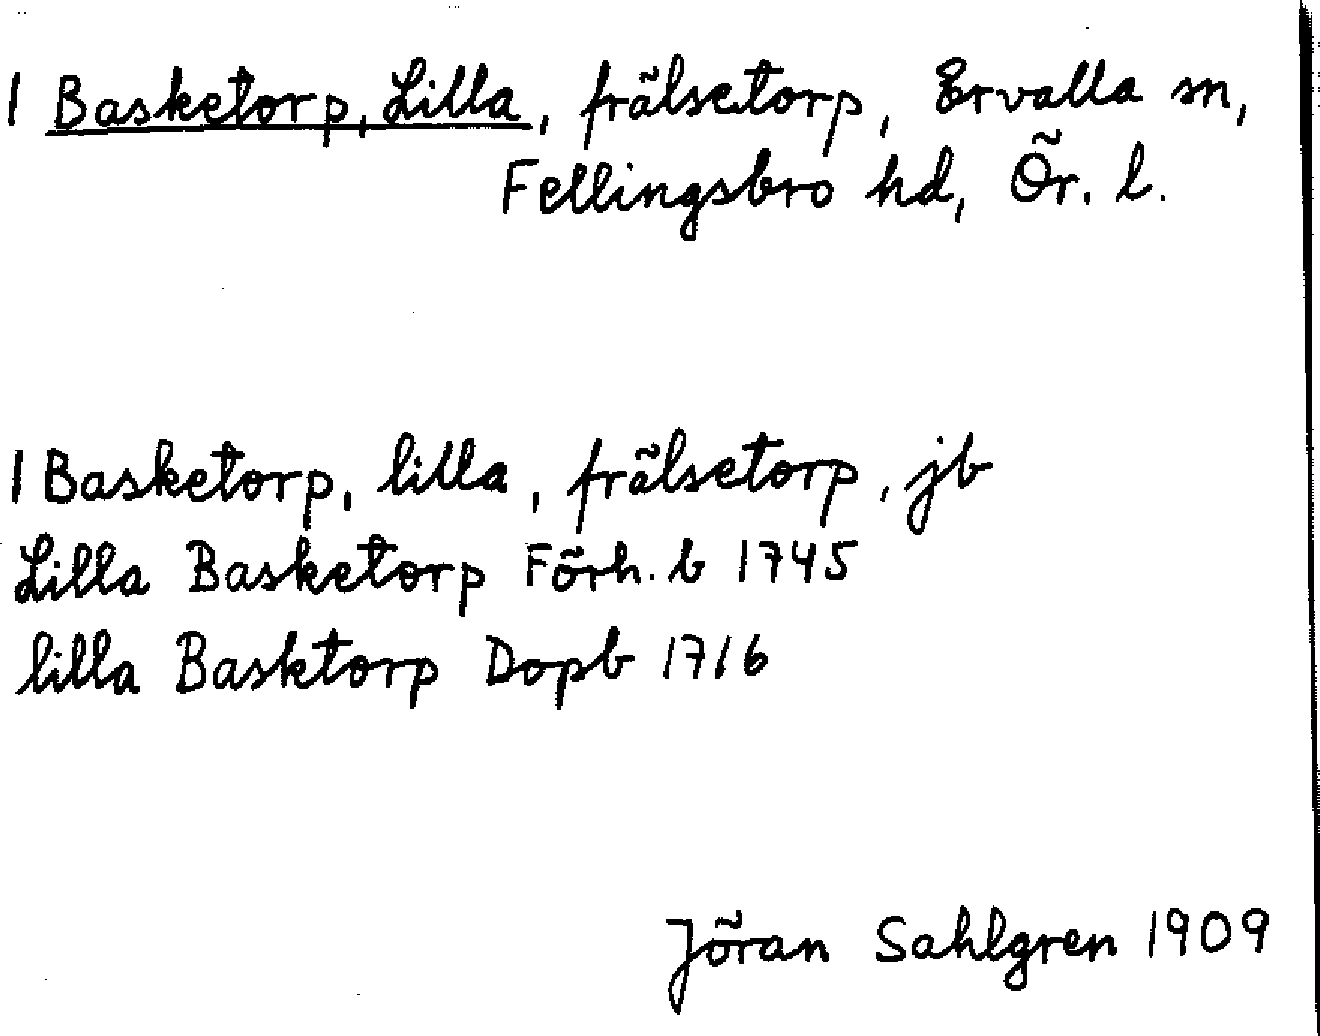 1 Basketorp, Lilla, frälsetorp, Ervalla sn,
Fellingsbro hd, Ör. l.
1 Basketorp, lilla, frälsetorp, jb
Lilla Basketorp Förh. b 1745
lilla Basktorp Dopb 1716
Jöran Sahlgren 1909